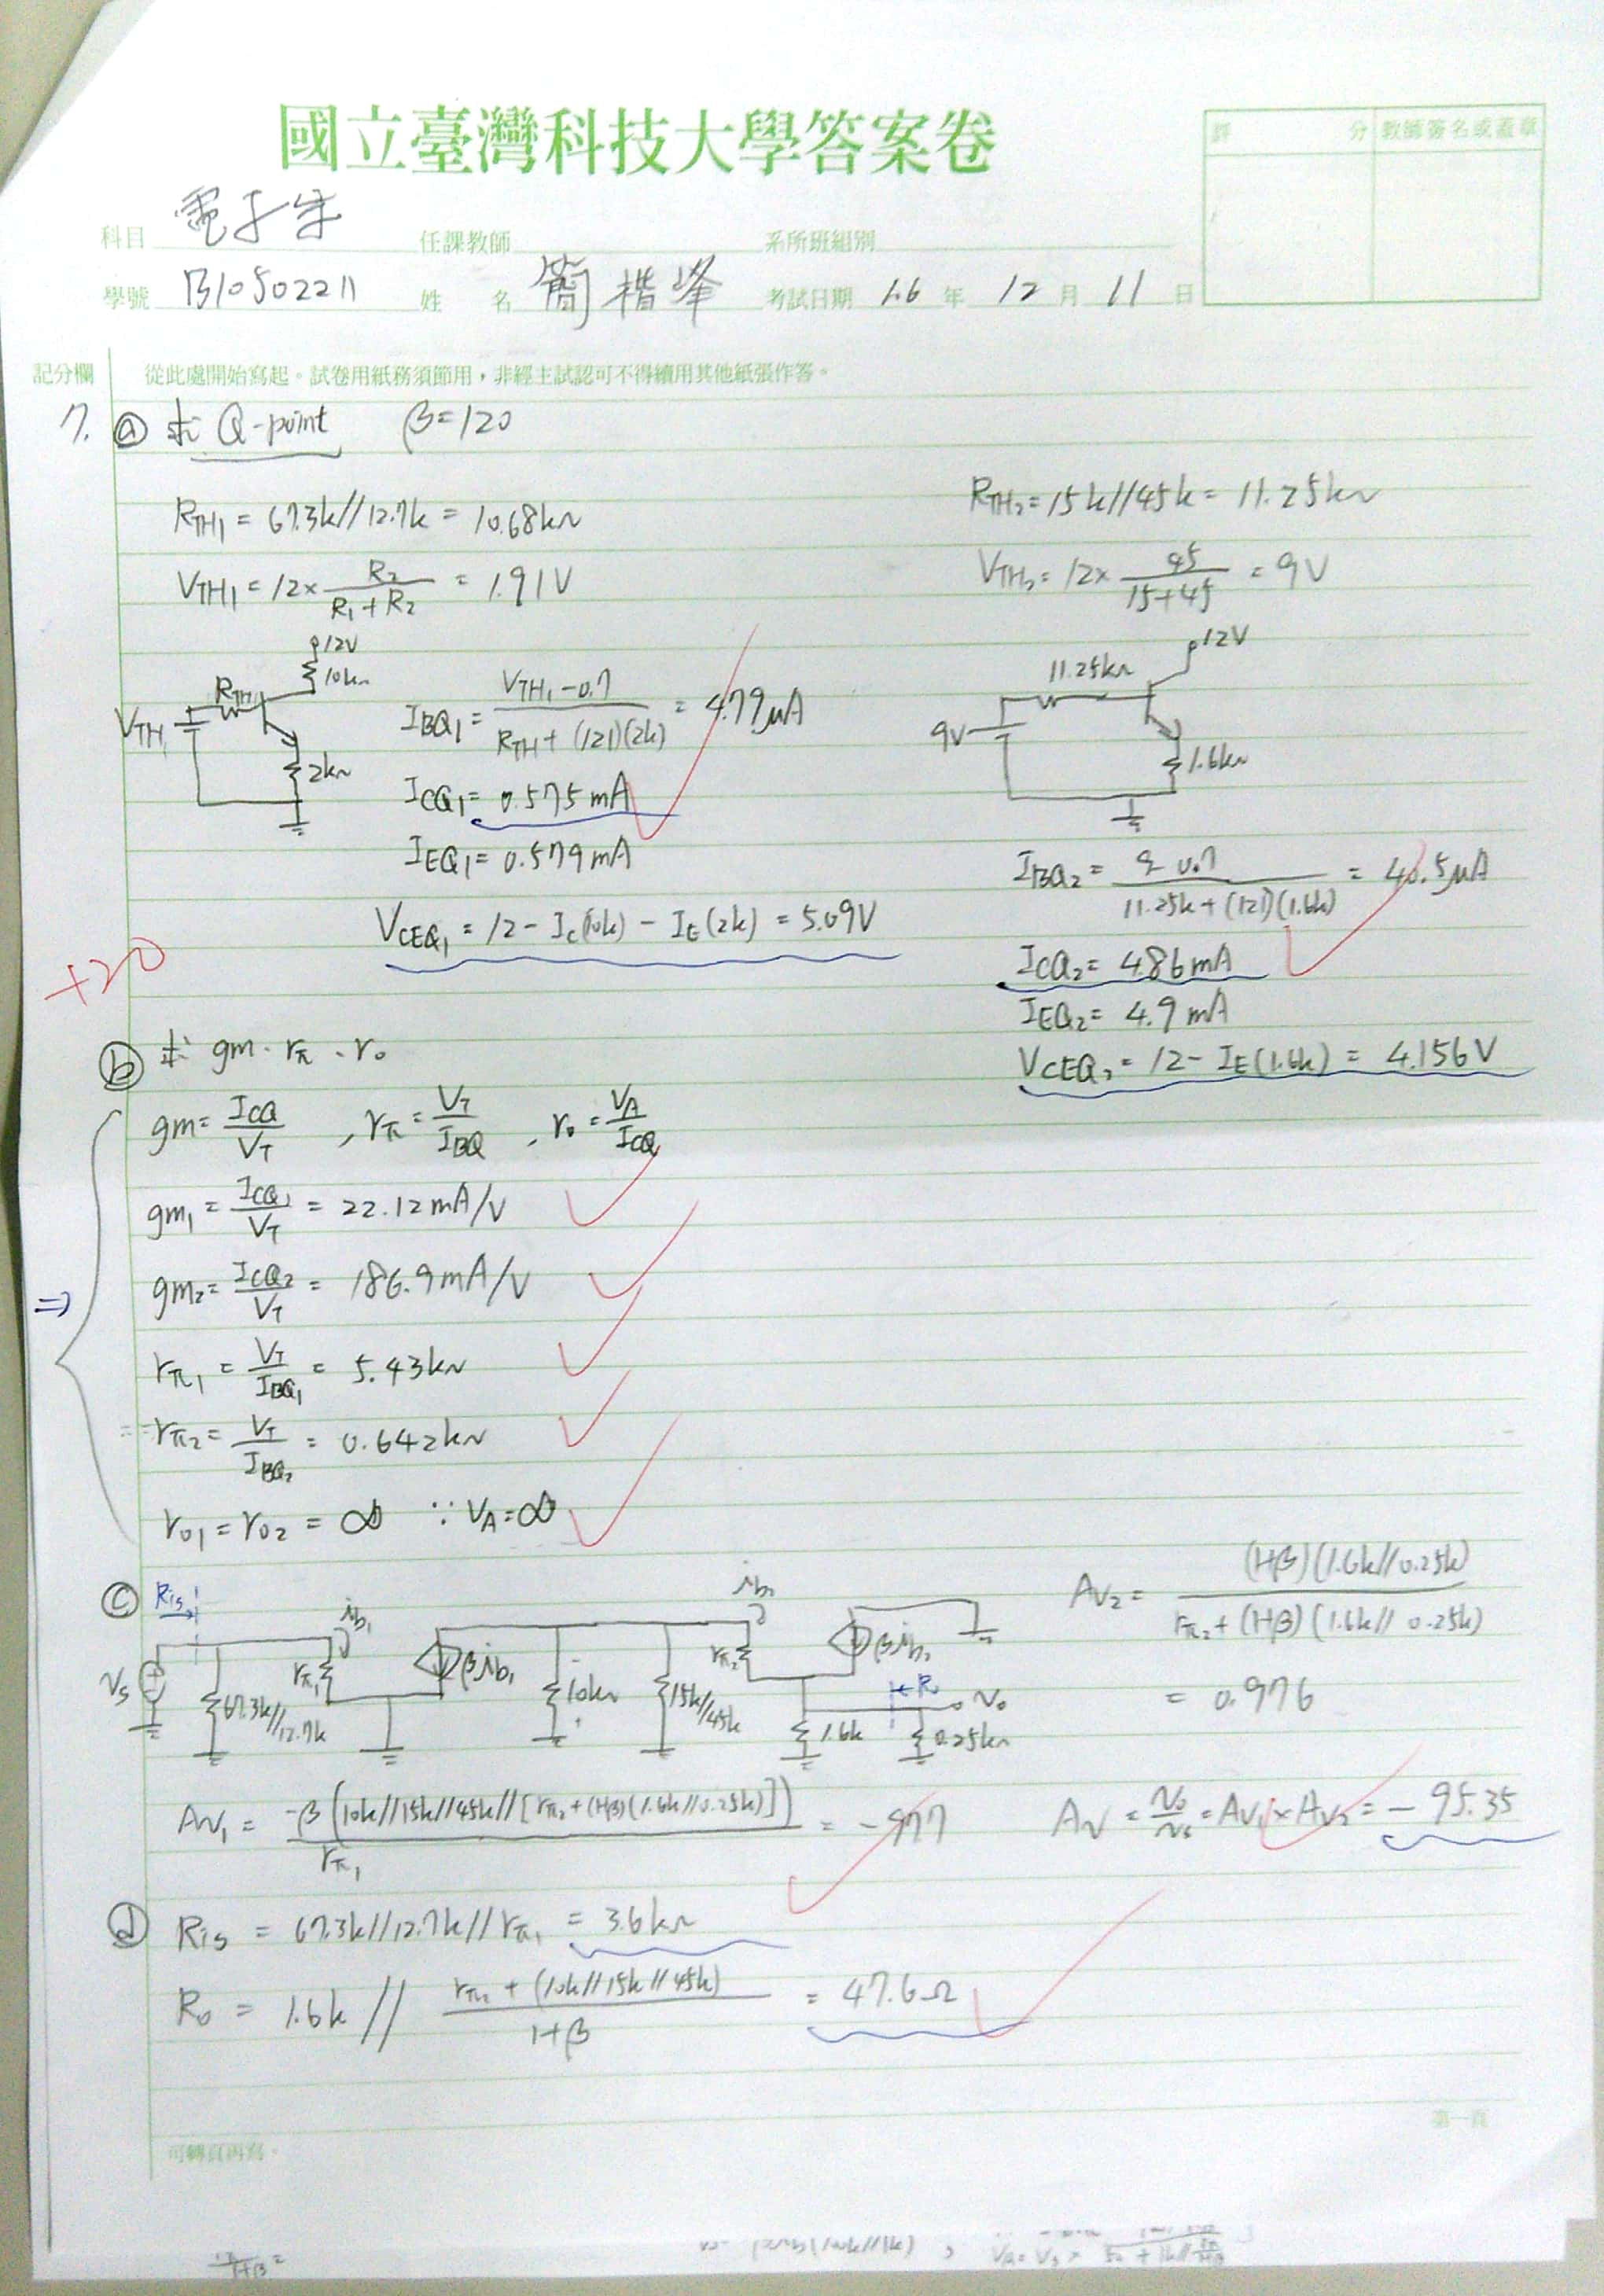 國立臺灣科技大學答案卷
評分 教師簽名或蓋章
科目 電子學 任課教師 系所班組別
學號 B10502211 姓名 簡楷峰 考試日期 106 年 12 月 11 日
記分欄 從此處開始寫起。試卷用紙務須節用,非經主試認可不得續用其他紙張作答。
7. ⓐ 求 Q-point β=120
R_TH1 = 67.3k//12.7k = 10.68kΩ
V_TH1 = 12× R2/(R1+R2) = 1.91V
R_TH2 = 15k//45k = 11.25kΩ
V_TH2 = 12× 45/(15+45) = 9V
12V
10kΩ
R_TH1
V_TH1
2kΩ
I_BQ1 = (V_TH1 -0.7)/(R_TH + (121)(2k)) = 4.79μA
I_CQ1 = 0.575mA
I_EQ1 = 0.579mA
V_CEQ1 = 12 - I_C(10k) - I_E(2k) = 5.09V
12V
11.25kΩ
9V
1.6kΩ
I_BQ2 = (9-0.7)/(11.25k+(121)(1.6k)) = 40.5μA
I_CQ2 = 4.86mA
I_EQ2 = 4.9mA
V_CEQ2 = 12 - I_E(1.6k) = 4.156V
+20
ⓑ 求 gm、rπ、ro
gm = I_CQ/V_T , rπ = V_T/I_BQ , ro = V_A/I_CQ
gm1 = I_CQ1/V_T = 22.12mA/V
⇒
gm2 = I_CQ2/V_T = 186.9mA/V
rπ1 = V_T/I_BQ1 = 5.43kΩ
rπ2 = V_T/I_BQ2 = 0.642kΩ
ro1 = ro2 = ∞ ∵ V_A=∞
ⓒ Ris ib1 ib2
Vs rπ1 βib1 rπ2 βib2
67.3k//12.7k 10kΩ 15k//45k 1.6k Ro vo 0.25kΩ
Av2 = (1+β)(1.6k//0.25k)/(rπ2+(1+β)(1.6k//0.25k))
= 0.976
Av1 = -β(10k//15k//45k//[rπ2+(1+β)(1.6k//0.25k)])/rπ1 = -97.7
Av = vo/vs = Av1×Av2 = -95.35
ⓓ Ris = 67.3k//12.7k//rπ1 = 3.6kΩ
Ro = 1.6k // (rπ2 + (10k//15k//45k))/(1+β) = 47.6Ω
第一頁
可轉頁再寫。